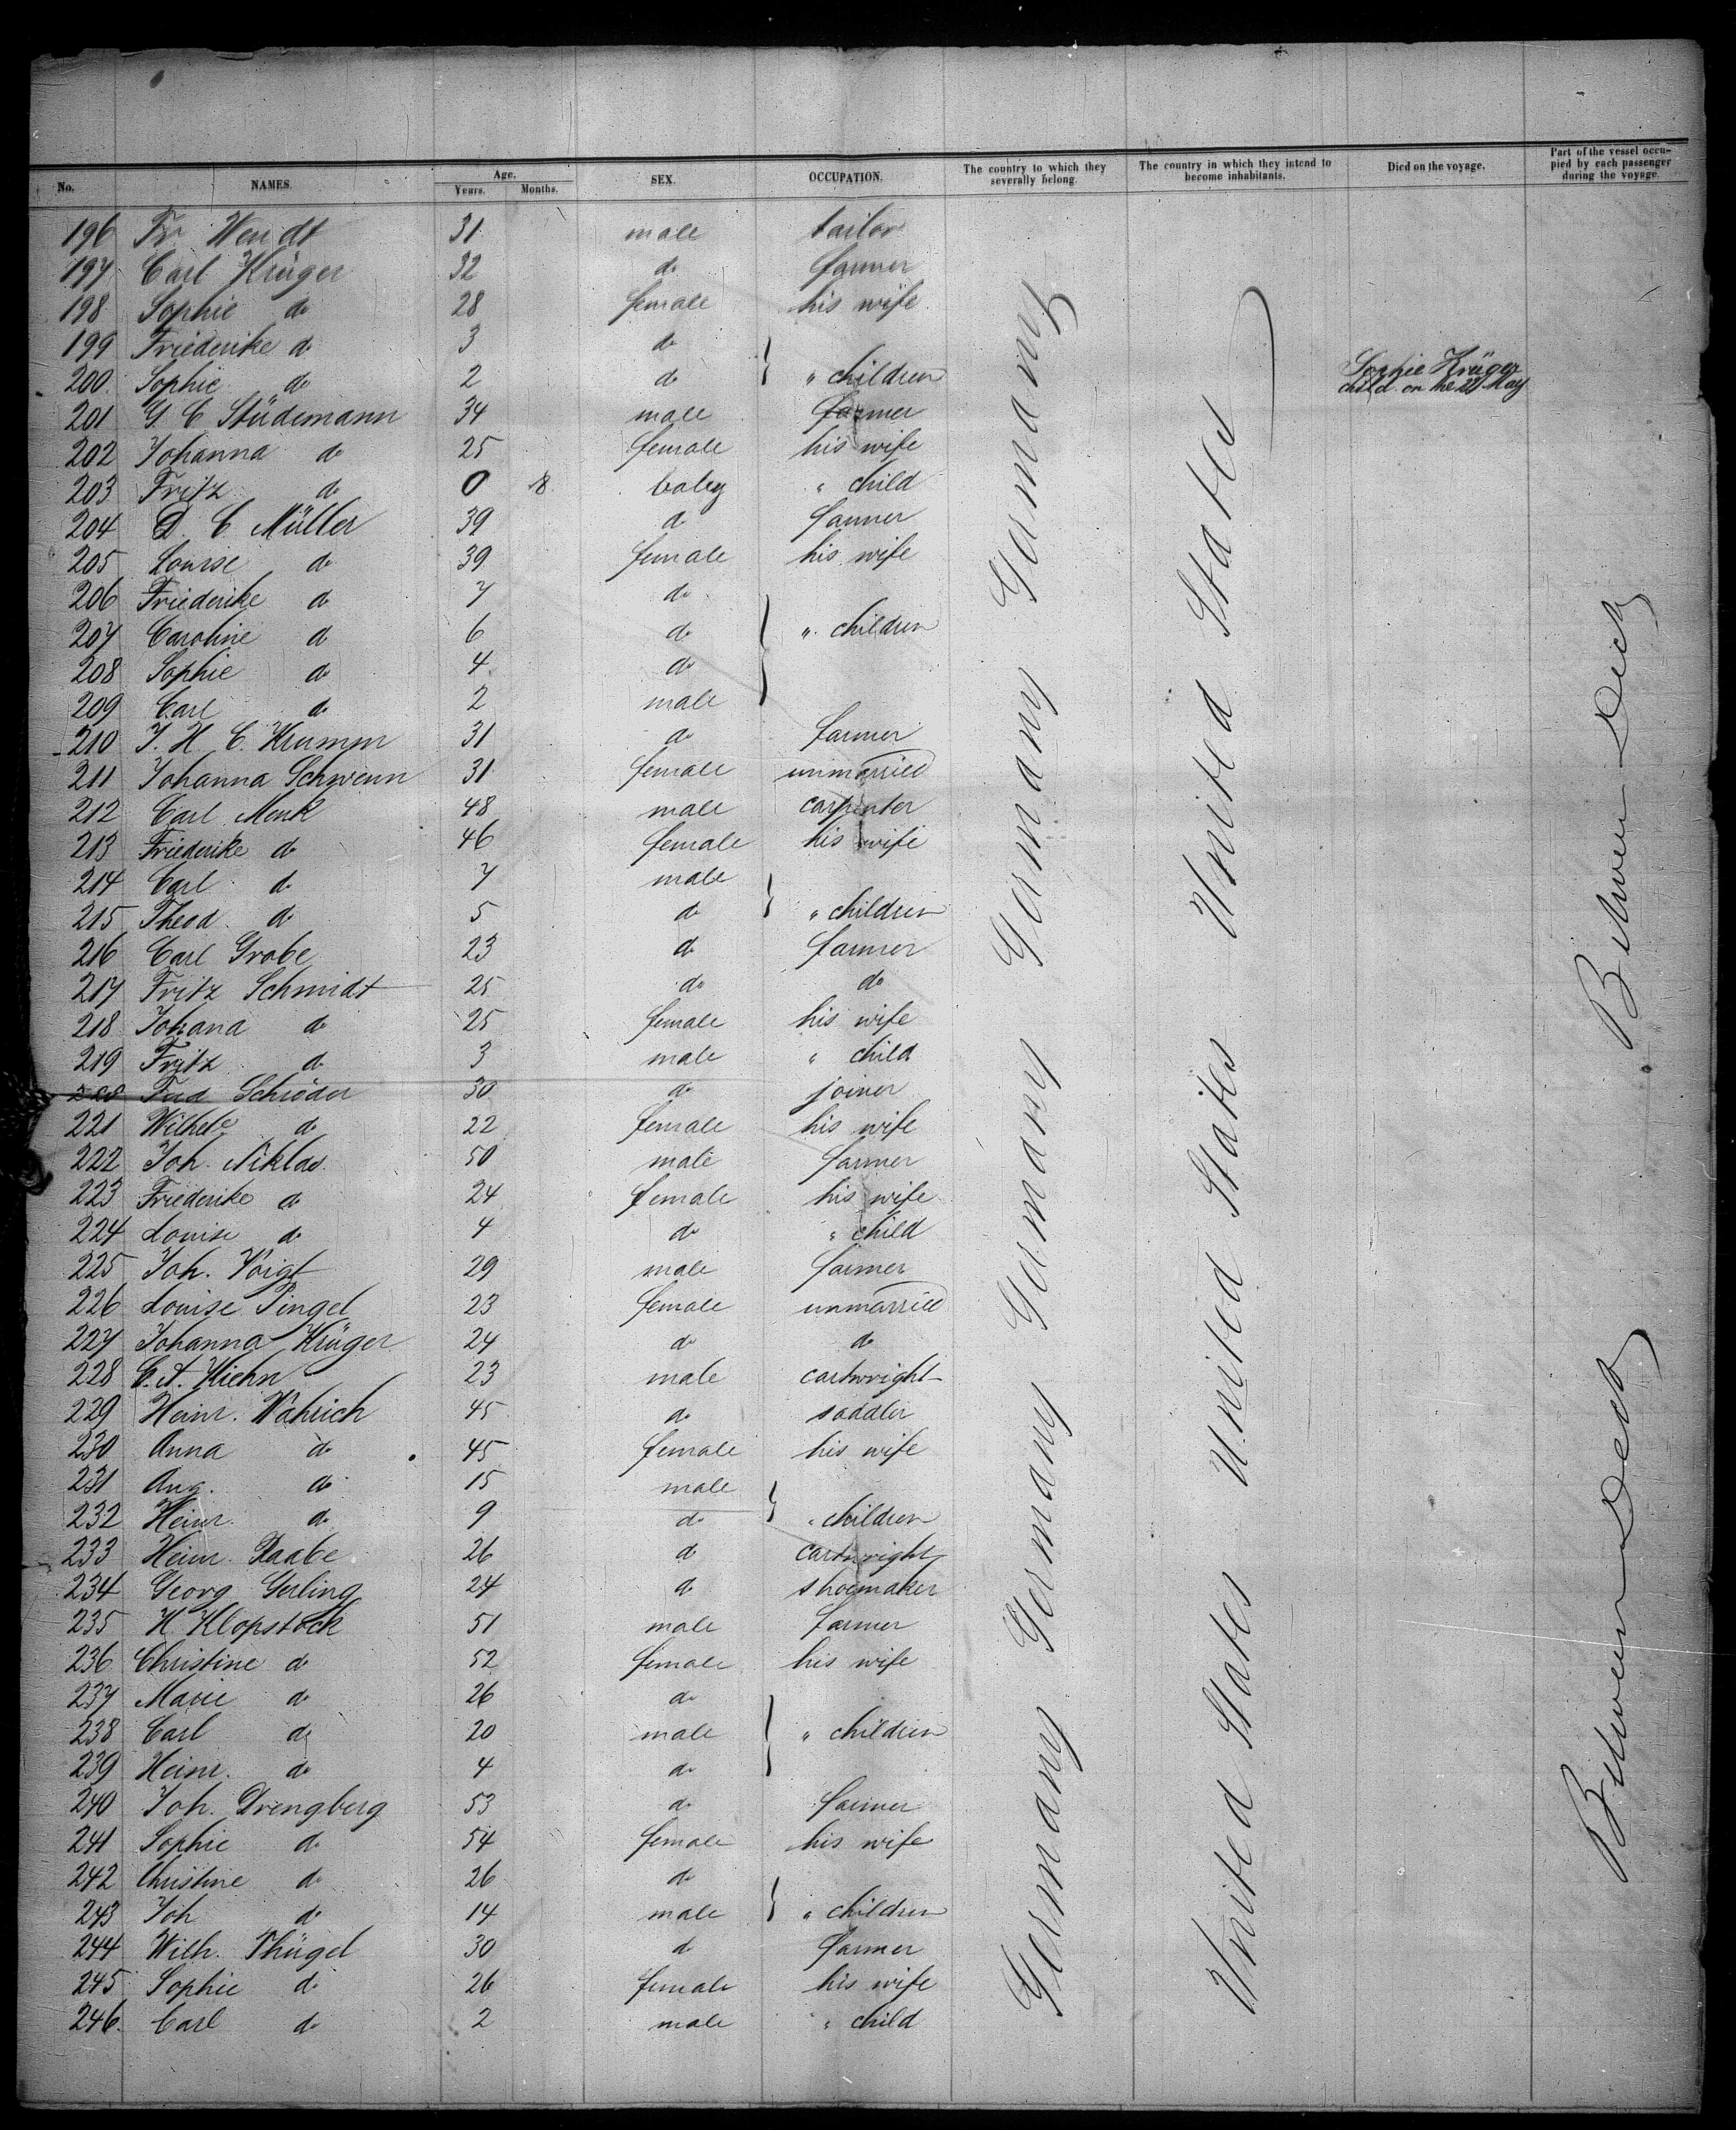 No. NAMES. Age. Years. Months. SEX. OCCUPATION. The country to which they severally belong. The country in which they intend to become inhabitants. Died on the voyage. Part of the vessel occupied by each passenger during the voyage.
196 Fr. Wendt 31 male tailor
197 Carl Krüger 32 do farmer
198 Sophie do 28 female his wife
199 Friederike do 3 do
200 Sophie do 2 do } " children Sophie Krüger
child on the 22 May
201 G. C. Stüdemann 34 male farmer
202 Johanna do 25 female his wife
203 Fritz do 0 8 baby " child
204 D. C. Müller 39 do farmer
205 Louise do 39 female his wife
206 Friederike do 7 do
207 Caroline do 6 do } " children
208 Sophie do 4 do
209 Carl do 2 male
210 J. H. C. Krumm 31 do farmer
211 Johanna Schwenn 31 female unmarried
212 Carl Menk 48 male carpenter
213 Friederike do 46 female his wife
214 Carl do 7 male
215 Theod. do 5 do } " children
216 Carl Grobe 23 do farmer
217 Fritz Schmidt 25 do do
218 Johana do 25 female his wife
219 Fritz do 3 male " child
220 Ferd Schröder 30 do joiner
221 Wilhele do 22 female his wife
222 Joh. Niklas 50 male farmer
223 Friederike do 24 female his wife
224 Louise do 4 do " child
225 Joh. Voigt 29 male farmer
226 Louise Pingel 23 female unmarried
227 Johanna Krüger 24 do do
228 C. A. Kiehn 23 male cartwright
229 Heinr. Wöhrich 45 do saddler
230 Anna do 45 female his wife
231 Aug. do 15 male
232 Heinr. do 9 do } " children
233 Heinr. Raabe 26 do cartwright
234 Georg Gerling 24 do shoemaker
235 H Klopstock 51 male farmer
236 Christine do 52 female his wife
237 Marie do 26 do
238 Carl do 20 male } " children
239 Heinr. do 4 do
240 Joh. Drengberg 53 do farmer
241 Sophie do 54 female his wife
242 Christine do 26 do
243 Joh do 14 male } " children
244 Wilh. Thügel 30 do farmer
245 Sophie do 26 female his wife
246. Carl do 2 male " child
Germany Germany Germany Germany Germany
United States United States United States
Between Deck Between Deck